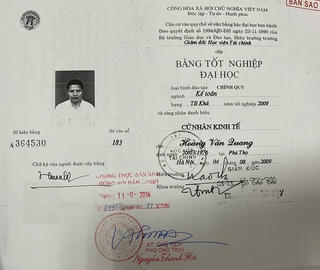 CỘNG HÒA XÃ HỘI CHỦ NGHĨA VIỆT NAM
BẢN SAO
Độc lập - Tự do - Hạnh phúc
Căn cứ vào quy chế về văn bằng bậc đại học ban hành
theo quyết định số 1994/QĐ-ĐH ngày 23-11-1990 của
Bộ trưởng Giáo dục và Đào tạo, Hiệu trưởng trường
Giám đốc Học viện Tài chính
cấp
BẰNG TỐT NGHIỆP
ĐẠI HỌC
loại hình đào tạo CHÍNH QUY
ngành Kế toán
hạng TB Khá năm tốt nghiệp 2009
và công nhận danh hiệu
CỬ NHÂN KINH TẾ
Số hiệu bằng
A 364530
Số vào sổ
183
Chữ ký của người được cấp bằng
Hoàng Văn Quang
1976 tại Phú Thọ
Hà Nội, ngày 04 tháng 08 năm 2009
GIÁM ĐỐC
Hiệu trưởng
Khoa trưởng
CHỨNG THỰC BẢN SAO
ĐÚNG VỚI BẢN CHÍNH
Ngày 11-11-2014
KT. CHỦ TỊCH
PHÓ CHỦ TỊCH
Nguyễn Thanh Hòa